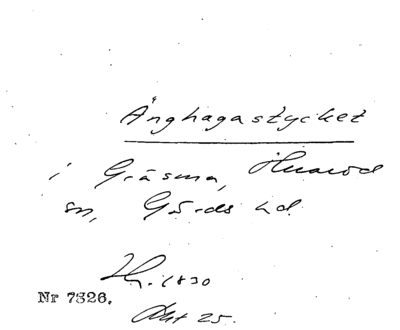 Änghagastycket
i Gräsma, Huaröd
sn, Gärds hd.
1830
Nr 7326.
Akt 25.